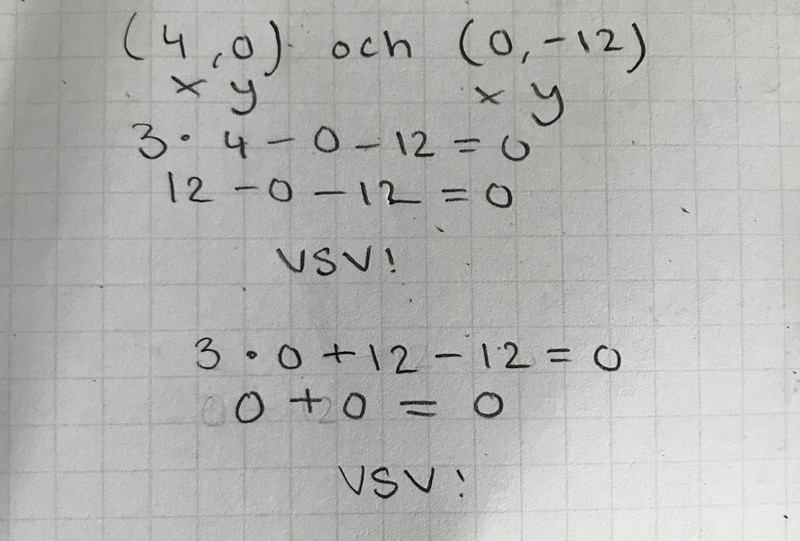 (4,0) och (0,-12)
x y x y
3 · 4 - 0 - 12 = 0
12 - 0 - 12 = 0
VSV!
3 · 0 + 12 - 12 = 0
0 + 0 = 0
VSV!